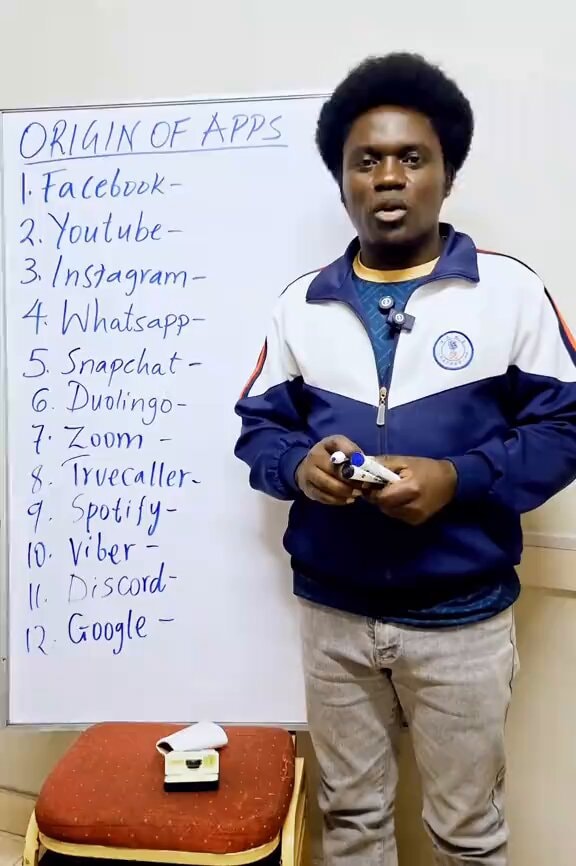 ORIGIN OF APPS
1. Facebook-
2. Youtube-
3. Instagram-
4. Whatsapp-
5. Snapchat-
6. Duolingo-
7. Zoom -
8. Truecaller-
9. Spotify-
10. Viber -
11. Discord-
12. Google -